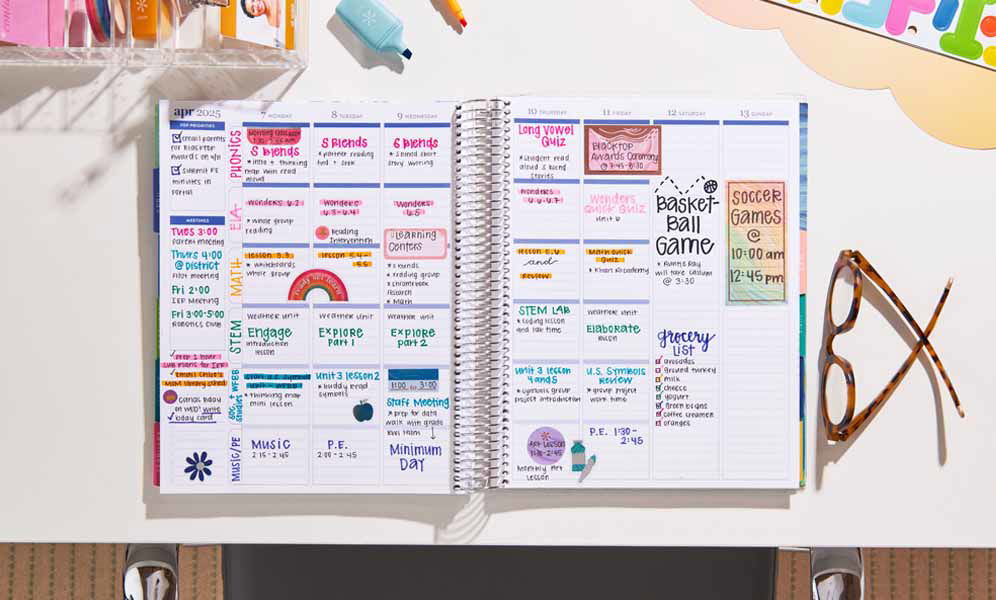 apr 2025
TOP PRIORITIES
email parents
for Blacktop
awards on 4/11
submit PE
minutes in
portal
MEETINGS
TUES 3:00
parent meeting
Thurs 4:00
@ District
Pilot meeting
Fri 2:00
IEP Meeting
Fri 3:00-5:00
Robotics Club
prep 1 hour
sub plans for IEP
write
bday card
PHONICS
ELA
MATH
STEM
MUSIC/PE
7 MONDAY
S Blends
* intro + thinking
map with read
aloud
Wonders 6.2
* whole group
reading
lesson 5.3
* whiteboards
whole group
weather unit
Engage
introduction
lesson
* thinking map
mini lesson
MUSIC
2:15-2:45
8 TUESDAY
S Blends
* partner reading
find + seek
Wonders
6.3-6.4
Reading
Intervention
lesson 5.4-
5.5
weather unit
Explore
part 1
unit 3 lesson 2
* buddy read
symbols
P.E.
2:00-2:45
9 WEDNESDAY
S Blends
Wonders
6.5
Learning
Centers
* reading group
* chromebook
research
* math
weather unit
Explore
part 2
1:00 to 3:00
Staff Meeting
* prep for data
walk with grade
level team
Minimum
DAY
10 THURSDAY
Long Vowel
Quiz
* student read
aloud s blend
stories
Wonders
6.6-6.7
lesson 5.6
and
Review
STEM LAB
* coding lesson
and lab time
unit 3 lesson
4 and 5
* symbols group
project introduction
Art Lesson
Monthly Art
lesson
11 FRIDAY
Blacktop
Awards Ceremony
Wonders
Quick Quiz
unit 6
Math Quick
Quiz
* Khan Academy
weather unit
Elaborate
lesson
U.S. Symbols
Review
* group project
work time
P.E. 1:30-
2:45
12 SATURDAY
Basket-
Ball
Game
will take
@ 3:30
grocery
LIST
avocados
ground turkey
milk
cheese
yogurt
green beans
coffee creamer
oranges
13 SUNDAY
SOCCER
Games
@
10:00 am
12:45 pm